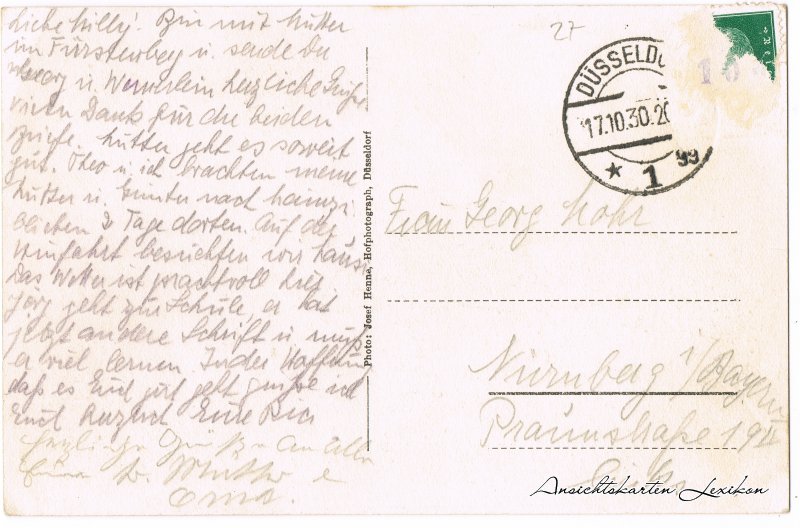 Liebe Milly! Bin mit Mutter
im Fürstenberg u. sende Du
u. Wernerlein herzliche Grüße
vielen Dank für die beiden
Briefe. Mutter geht es soweit
gut. Theo u. ich brachten meine
Mutter u. Günter nach
blieben 3 Tage dorten. Auf der
besuchten wir
Das Wetter ist prachtvoll hier
Jörg geht zur Schule, er hat
jetzt andere Schrift u. muß
er viel lernen In der Hoffnung
daß es Euch gut geht grüße ich
Euch herzlich Eure
Herzliche Grüße an alle
Mutter
Oma.
Photo: Josef Henne, Hofphotograph, Düsseldorf
27
DÜSSELDO
17.10.30.20
* 1 99
10
Frau Georg Mohr
Nürnberg i/Bayern
Praunstraße 19
Ansichtskarten Lexikon